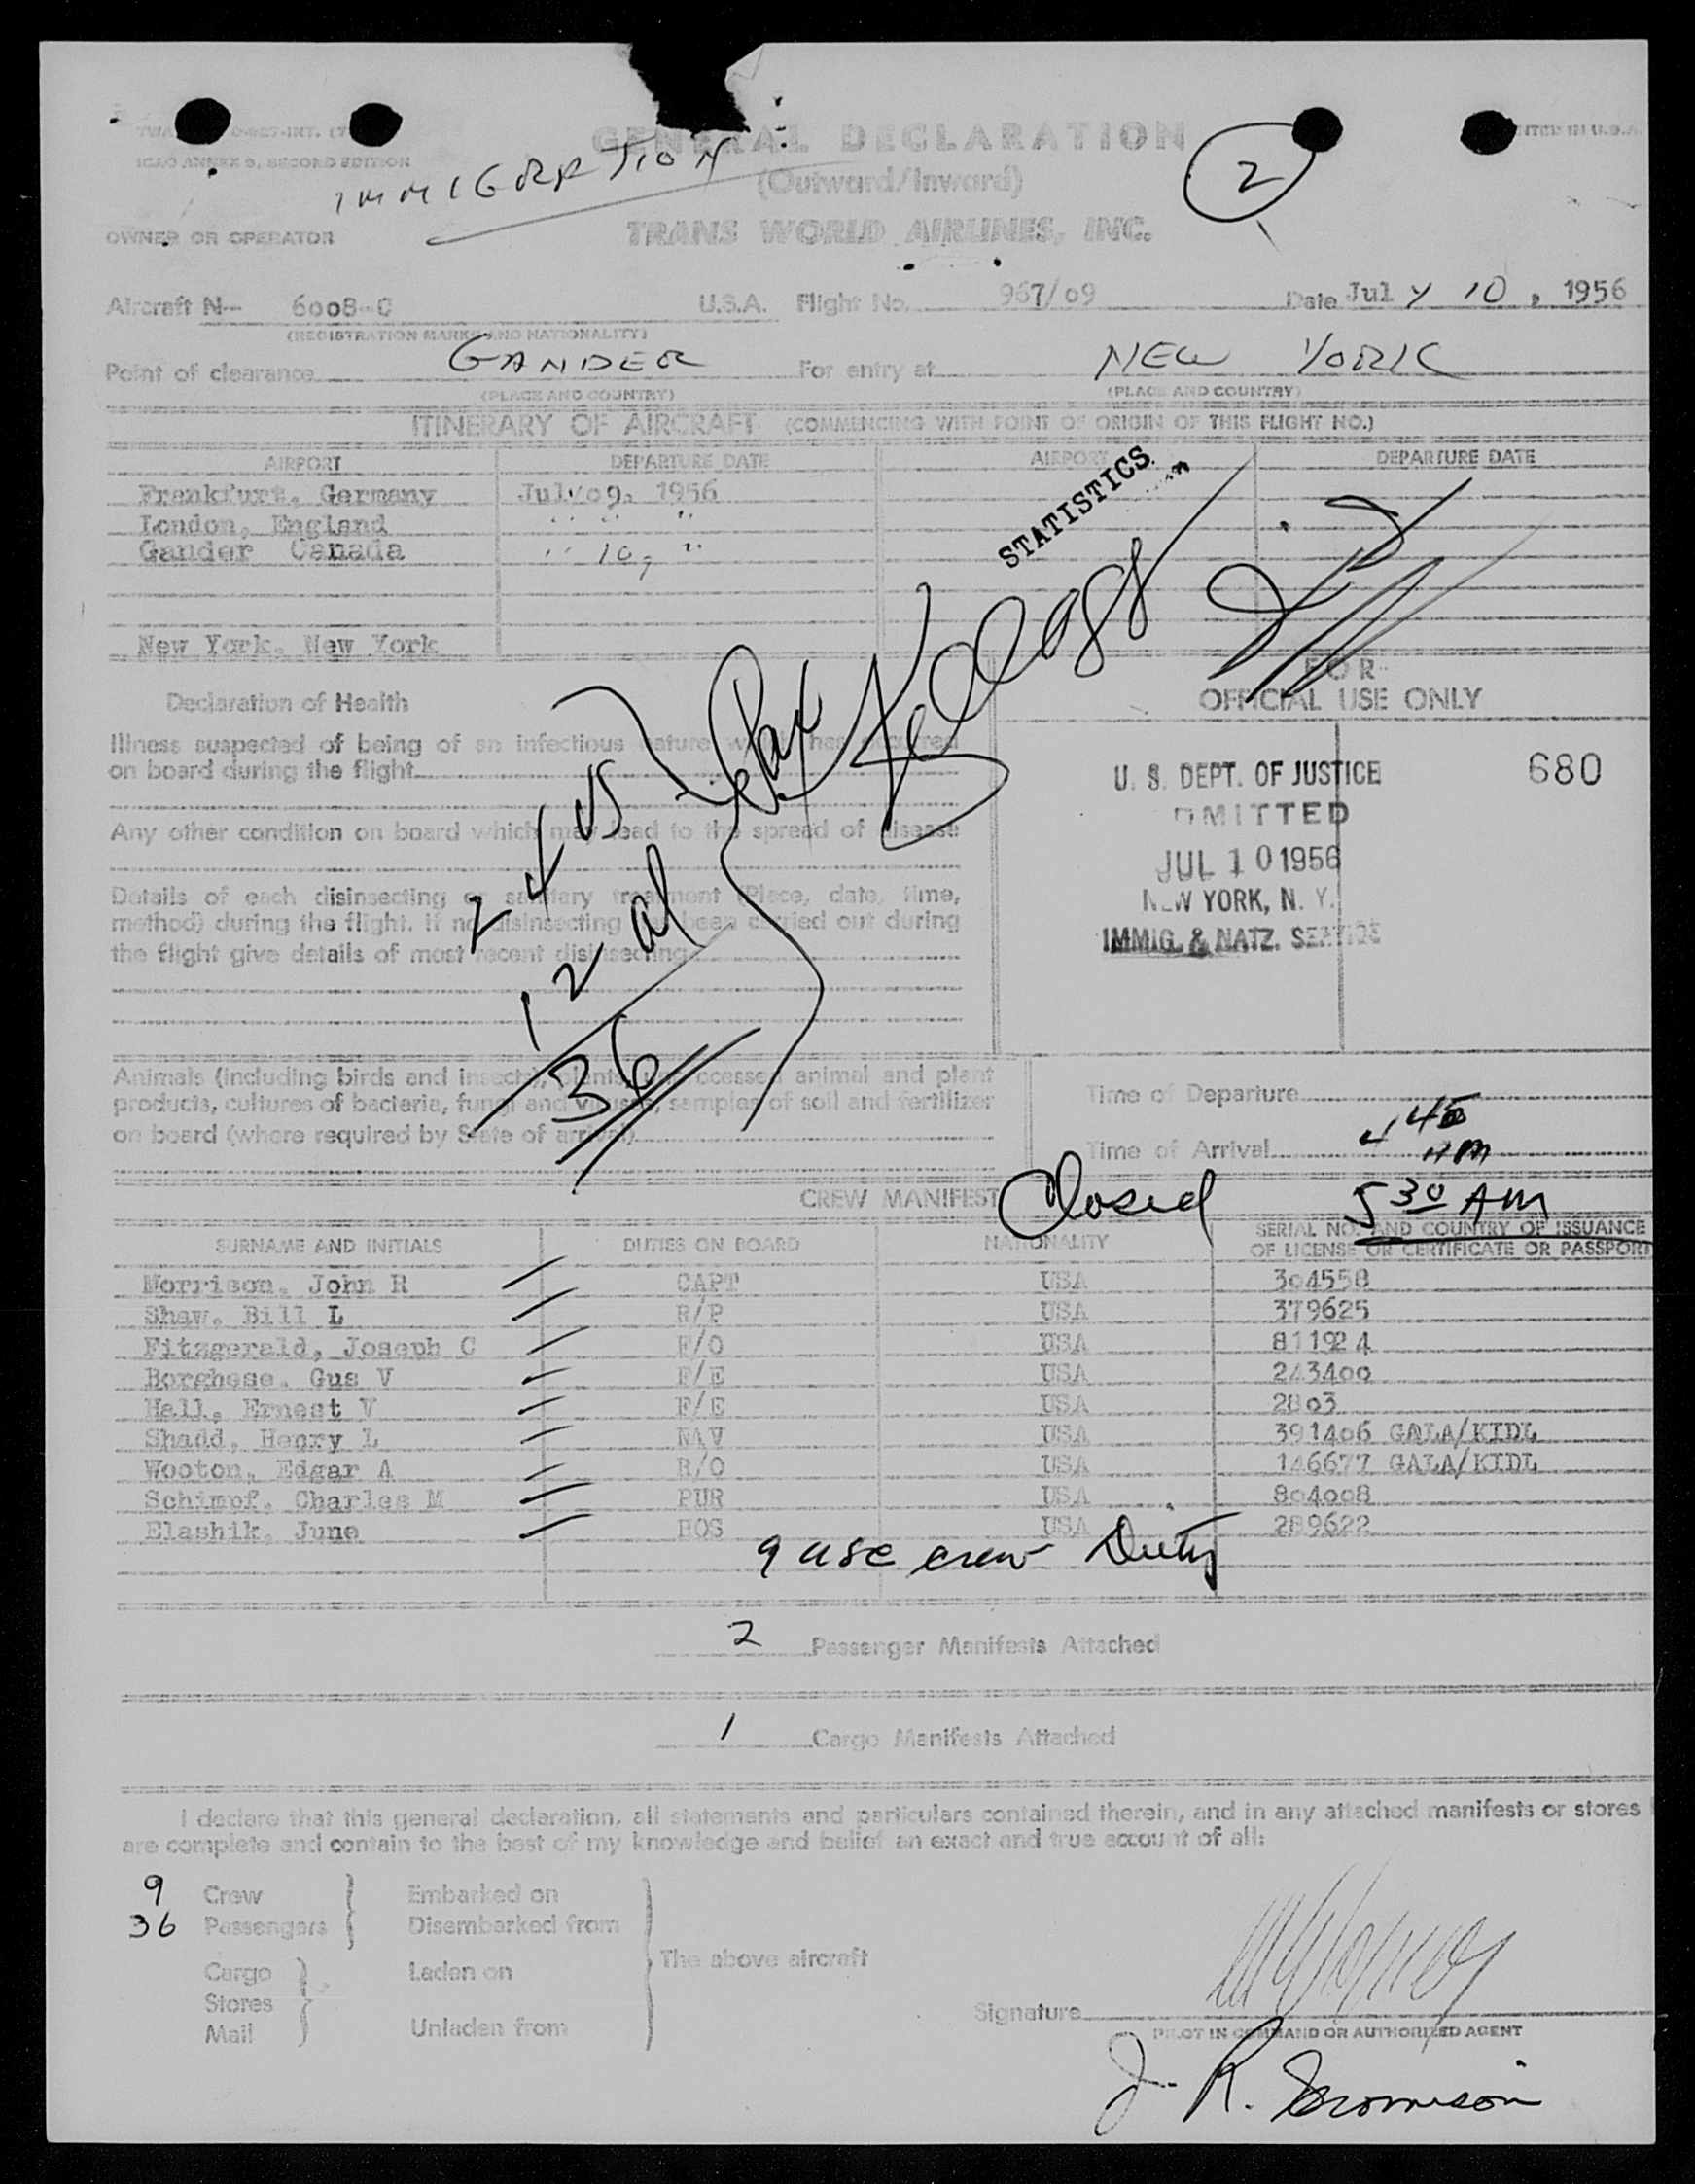 ICAO ANNEX 9, SECOND EDITION
GENERAL DECLARATION
IMMIGRATION
(Outward/Inward)
2
OWNER OR OPERATOR
TRANS WORLD AIRLINES, INC.
Aircraft N-- 6008-C U.S.A. Flight No. 967/09 Date July 10, 1956
(REGISTRATION MARKS AND NATIONALITY)
Point of clearance GANDER For entry at NEW YORK
(PLACE AND COUNTRY) (PLACE AND COUNTRY)
ITINERARY OF AIRCRAFT (COMMENCING WITH POINT OF ORIGIN OF THIS FLIGHT NO.)
AIRPORT DEPARTURE DATE AIRPORT DEPARTURE DATE
Frankfurt, Germany July 09, 1956
London, England " " "
Gander Canada " 10, "
New York, New York
STATISTICS
Declaration of Health
FOR
OFFICIAL USE ONLY
Illness suspected of being of an infectious nature which has occurred
on board during the flight
Any other condition on board which may lead to the spread of disease
Details of each disinsecting or sanitary treatment (Place, date, time,
method) during the flight. If no disinsecting has been carried out during
the flight give details of most recent disinsecting
24 US
12 al
36
Pax
Kellogg
U. S. DEPT. OF JUSTICE 680
OMITTED
JUL 10 1956
NEW YORK, N. Y.
IMMIG. & NATZ. SERVICE
Animals (including birds and insects), plants, unprocessed animal and plant
products, cultures of bacteria, fungi and viruses, samples of soil and fertilizer
on board (where required by State of arrival)
Time of Departure
Time of Arrival 4 45 AM
Closed 5 30 AM
CREW MANIFEST
SURNAME AND INITIALS DUTIES ON BOARD NATIONALITY SERIAL NO. AND COUNTRY OF ISSUANCE
OF LICENSE OR CERTIFICATE OR PASSPORT
Morrison, John R CAPT USA 304558
Shaw, Bill L R/P USA 379625
Fitzgerald, Joseph C F/O USA 811924
Borghese, Gus V F/E USA 243400
Hall, Ernest V F/E USA 2803
Shadd, Henry L NAV USA 391406 GALA/KIDL
Wooton, Edgar A R/O USA 146677 GALA/KIDL
Schimpf, Charles M PUR USA 804008
Elashik, June HOS USA 289622
9 usc crew Duty
2 Passenger Manifests Attached
1 Cargo Manifests Attached
I declare that this general declaration, all statements and particulars contained therein, and in any attached manifests or stores
are complete and contain to the best of my knowledge and belief an exact and true account of all:
9 Crew Embarked on
36 Passengers Disembarked from
The above aircraft
Cargo Laden on
Stores
Mail Unladen from
Signature
PILOT IN COMMAND OR AUTHORIZED AGENT
J. R. Morrison